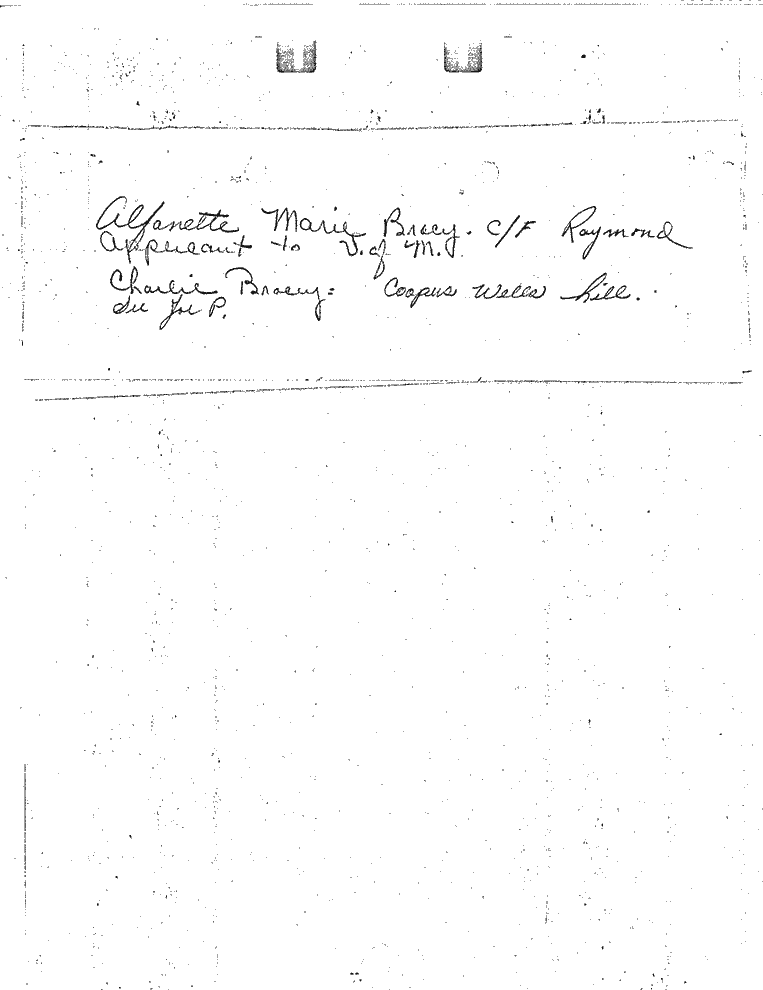 Alfanette Marie Bracy. C/F Raymond
Applicant to U. of M.
Charlie Bracy: Coopers Wells hill.
See Joe P.